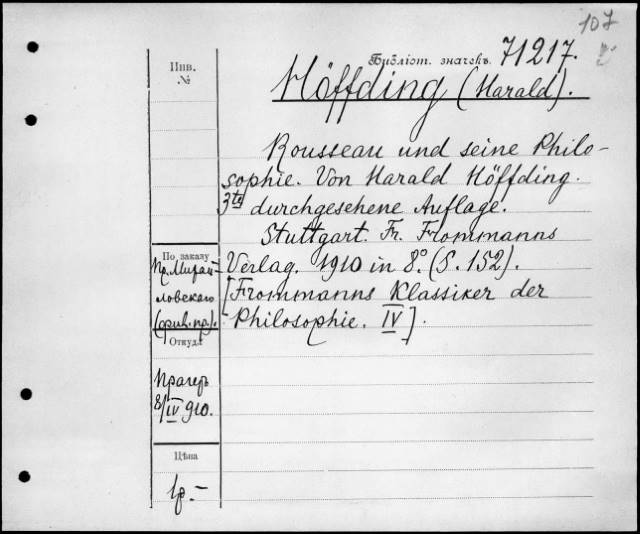 107
Библіот. значекъ. 71217.
Инв.
№
Höffding (Harald).
Rousseau und seine Philo-
sophie. Von Harald Höffding.
3te durchgesehene Auflage.
Stuttgart. Fr. Frommanns
Verlag. 1910 in 8° (S. 152).
[Frommanns Klassiker der
Philosophie. IV].
По заказу
Пр. Михай-
ловскаго
Откуда
Прагеръ
8/IV 910.
Цѣна
1р. –